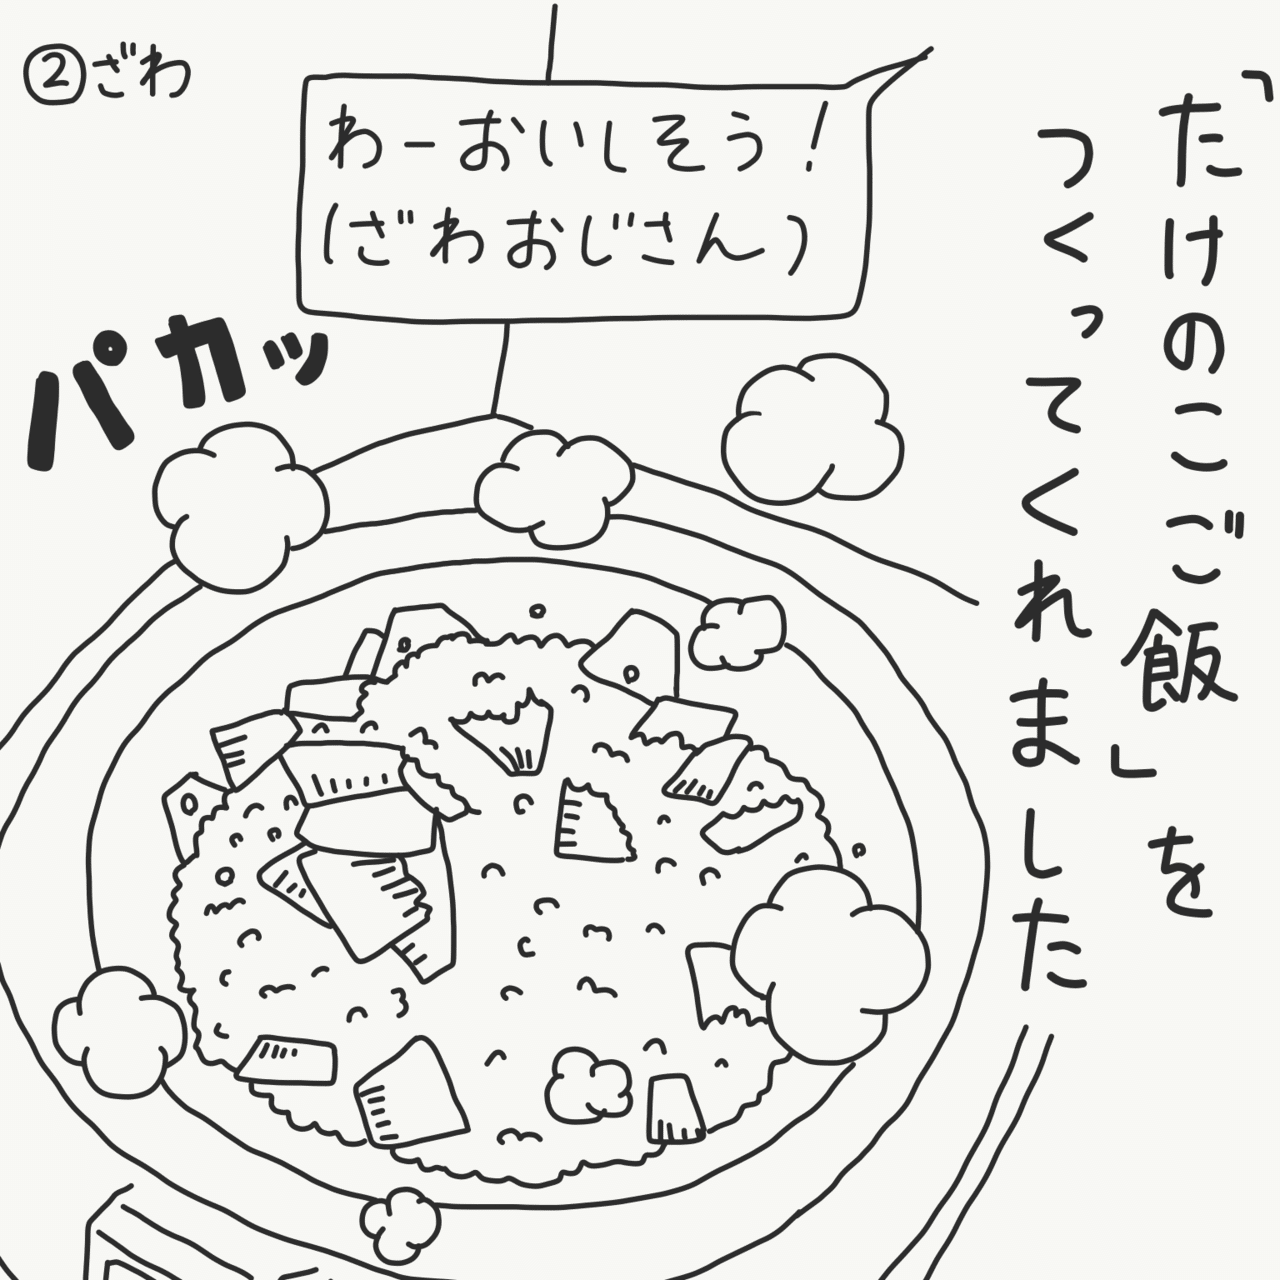 ②ざわ
「たけのこご飯」を
つくってくれました
わーおいしそう!
(ざわおじさん)
パカッ